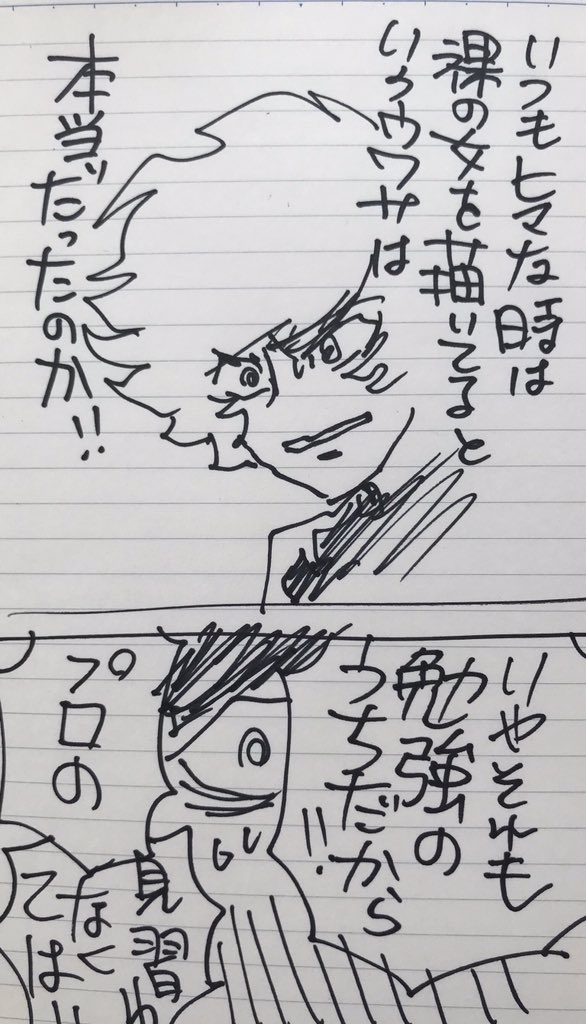 いつもヒマな時は
裸の女を描いてると
いうウワサは
本当だったのか!!
いやそれも
勉強の
うちだから
!!
プロの
見習わ
なく
ては